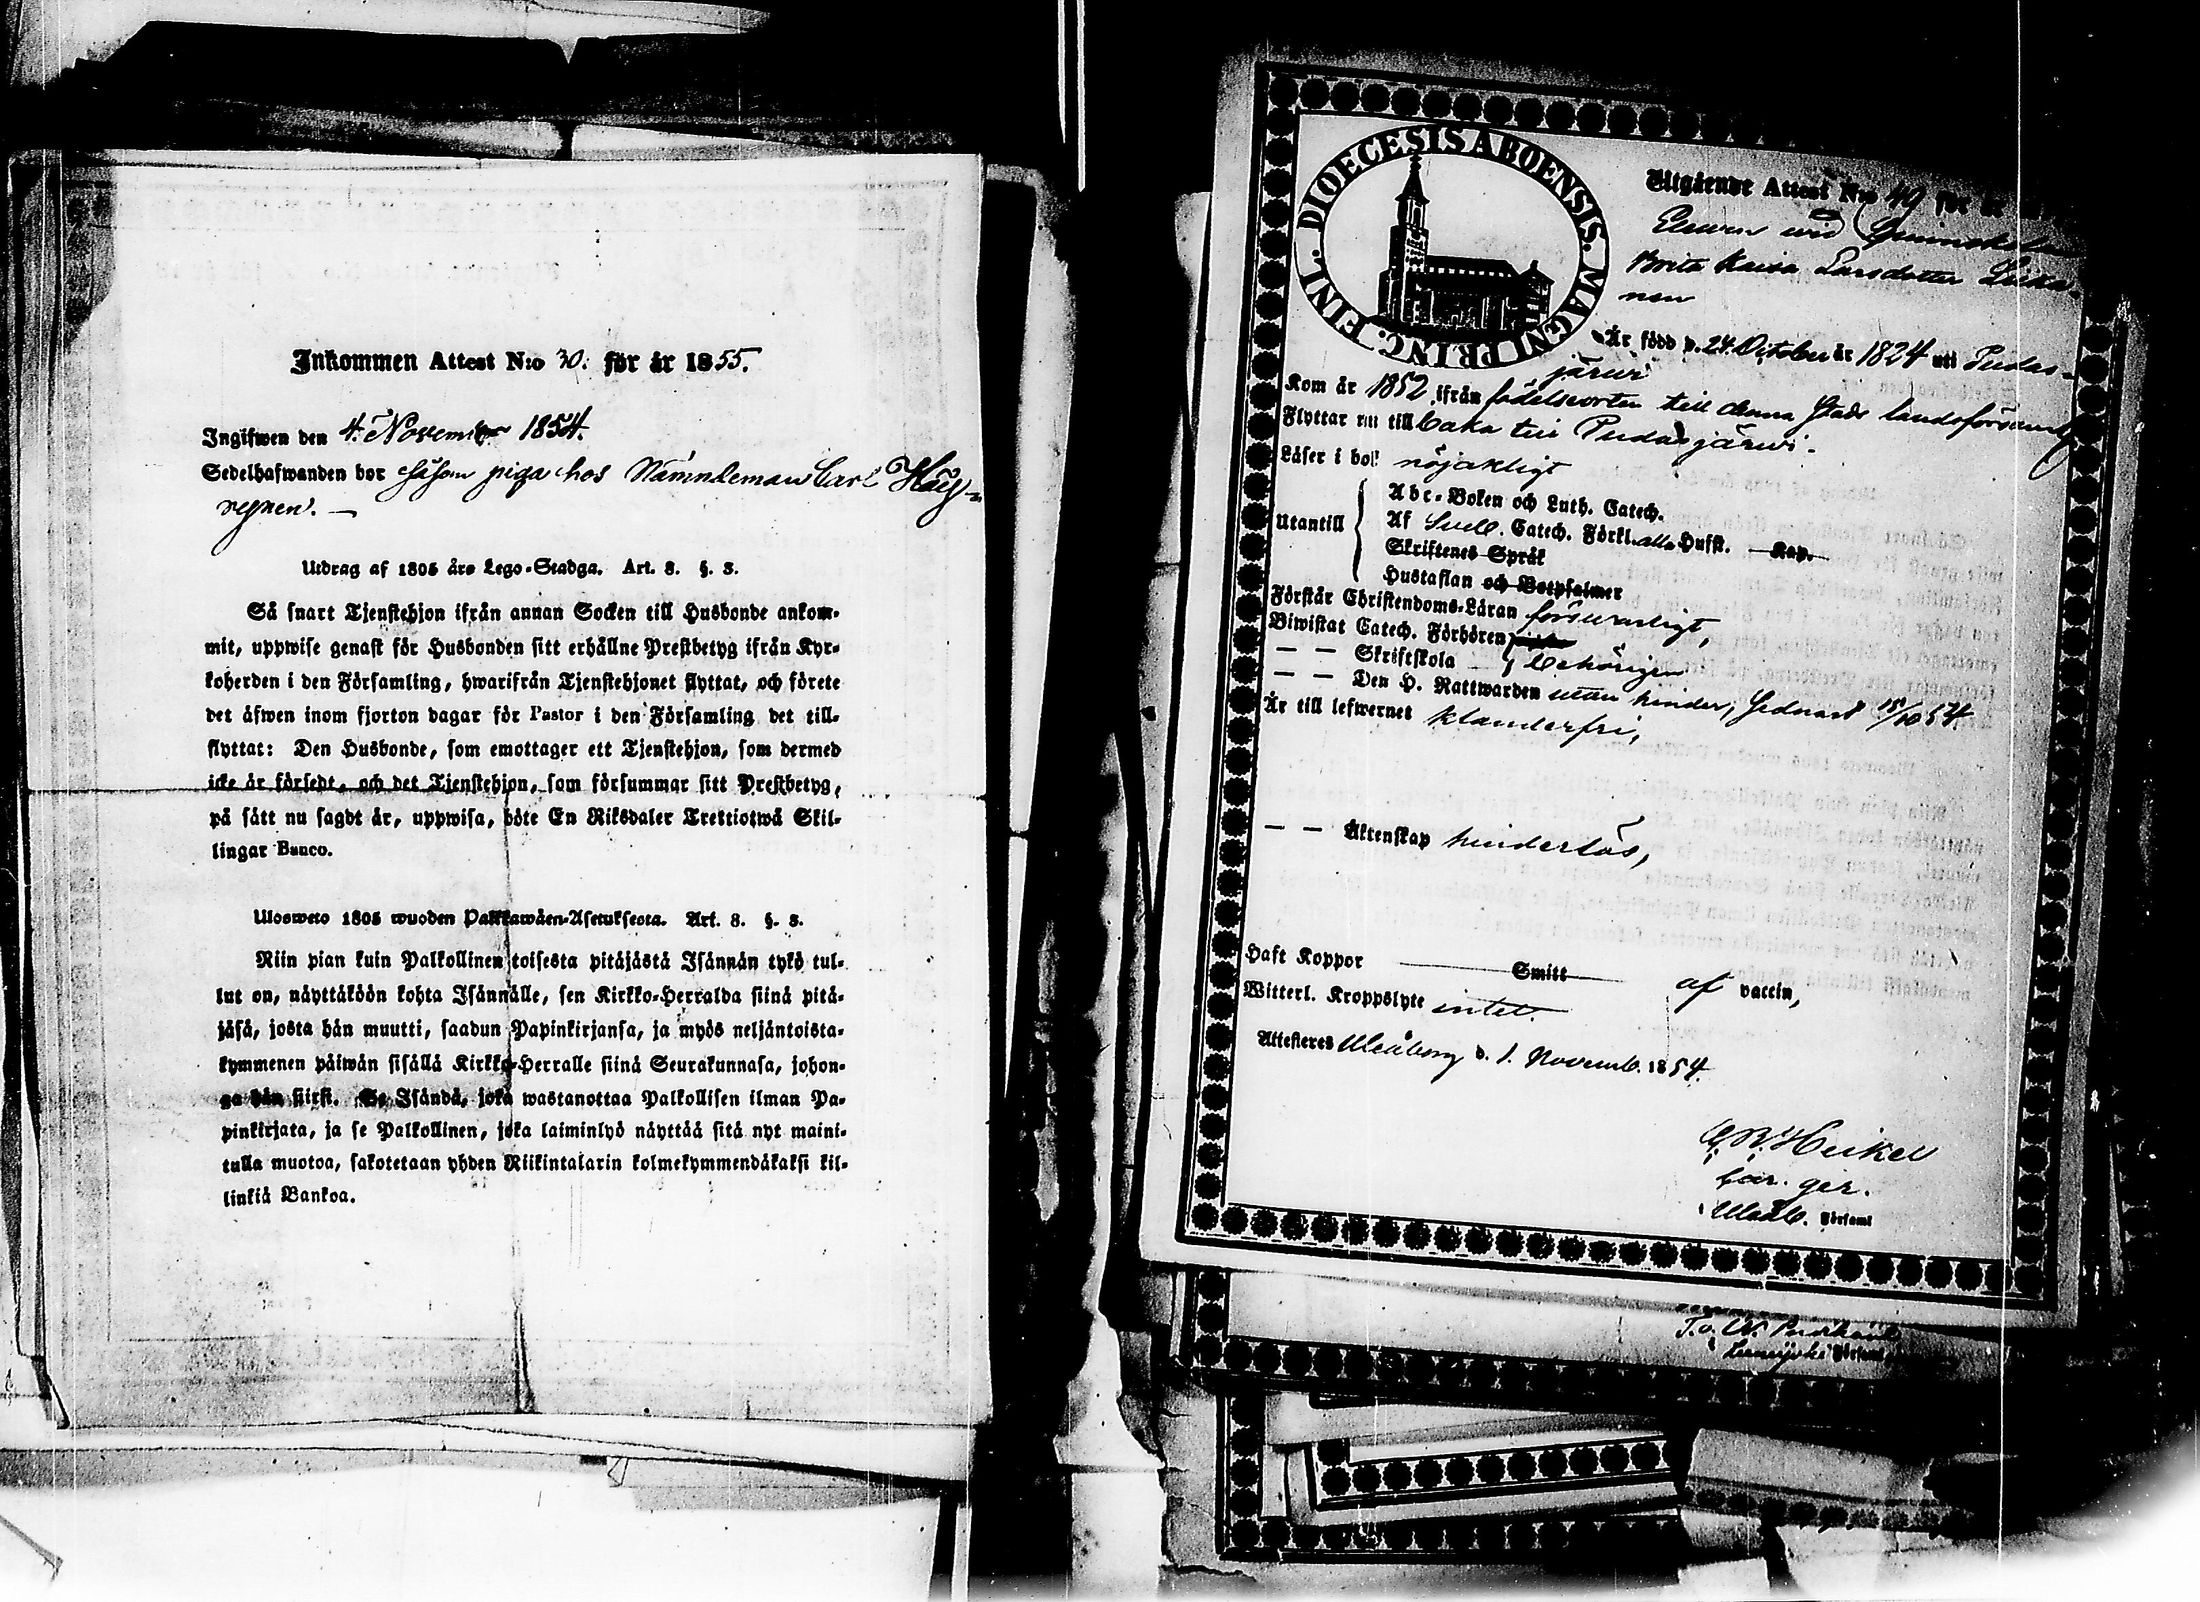 Inkommen Attest N:o 30: för år 1855.
Ingifwen den 4. November 1854.
Sedelhafwanden bor såsom piga hos Nämndeman Carl
Utdrag af 1805 års Lego-Stadga. Art. 8. §. 3.
Så snart Tjenstehjon ifrån annan Socken till Husbonde ankom-
mit, uppwise genast för Husbonden sitt erhållne Prestbetyg ifrån Kyr-
koherden i den Församling, hwarifrån Tjenstehjonet flyttat, och förete
det äfwen inom fjorton dagar för Pastor i den Församling det till-
flyttat: Den Husbonde, som emottager ett Tjenstehjon, som dermed
icke är försedt, och det Tjenstehjon, som försummar sitt Prestbetyg,
på sätt nu sagdt är, uppwisa, böte En Riksdaler Trettiotwå Skil-
lingar Banco.
Ulosweto 1805 wuoden Palkkawäen-Asetuksesta. Art. 8. §. 3.
Niin pian kuin Palkollinen toisesta pitäjästä Isännän tykö tul-
lut on, näyttäköön kohta Isännälle, sen Kirkko-Herralda siinä pitä-
jäsä, josta hän muutti, saadun Papinkirjansa, ja myös neljäntoista-
kymmenen päiwän sisällä Kirkko-Herralle siinä Seurakunnasa, johon-
ga hän siirsi. Se Isändä, joka wastanottaa Palkollisen ilman Pa-
pinkirjata, ja se Palkollinen, joka laiminlyö näyttää sitä nyt maini-
tulla muotoa, sakotetaan yhden Riikintalarin kolmekymmendäkaksi kil-
linkiä Bankoa.
DIOECESIS ABOENSIS. MAGNI PRINC. FINL.
Utgående Attest N:o 49 för år
wid
Brita Kaisa Larsdotter
nen
Är född d. 24. October år 1824 uti Pudas-
järwi
Kom år 1852 ifrån födelseorten till denna Stads landsförsaml
Flyttar nu till baka till Pudasjärwi.
Läser i bok nöjaktigt
Utantill
Abc-Boken och Luth. Catech.
Af Sveb. Catech. Förkl. alla Hufst. Kap.
Skriftenes Språk
Hustaflan och Botpsalmer
Förstår Christendoms-Läran försvarligt,
Biwistat Catech. Förhören
— — Skriftskola behörigen
— — Den H. Nattwarden utan hinder, sednast 15/10 54.
Är till lefwernet klanderfri,
— — Äktenskap hinderlös,
Haft Koppor Smitt af vaccin,
Witterl. Kroppslyte intet.
Attesteras Uleåborg d. 1. Novemb. 1854.
Heikel
Uleåb. Församl
T.o.
Församl